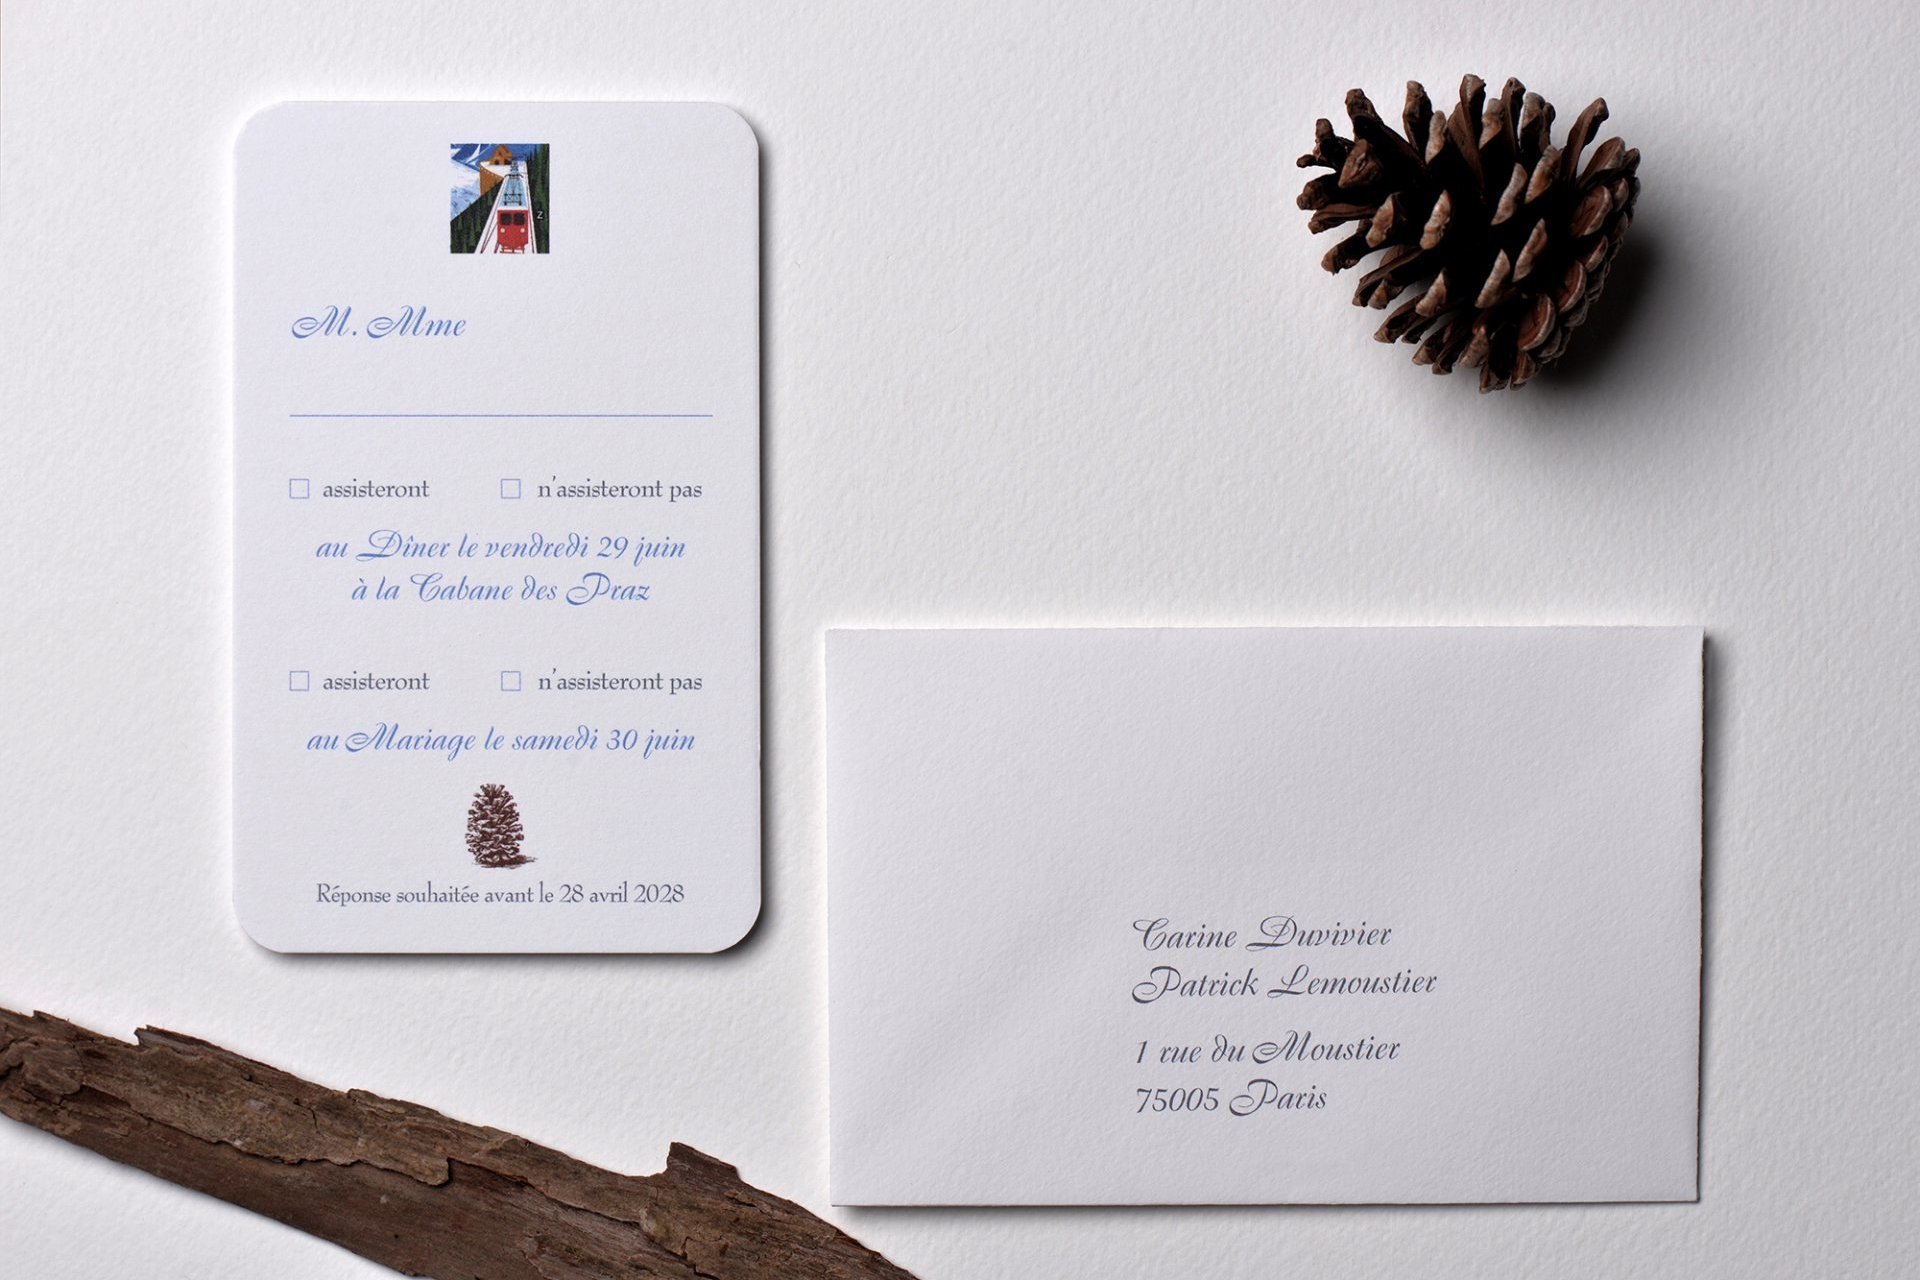 Z
M. Mme
assisteront n'assisteront pas
au Dîner le vendredi 29 juin
à la Cabane des Praz
assisteront n'assisteront pas
au Mariage le samedi 30 juin
Réponse souhaitée avant le 28 avril 2028
Carine Duvivier
Patrick Lemoustier
1 rue du Moustier
75005 Paris